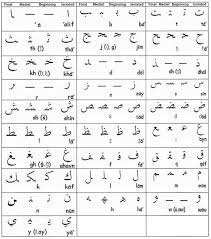 Final Medial Beginning Isolated Final Medial Beginning Isolated Final Medial Beginning Isolated
ا ا ـب ـبـ بـ ب ـت ـتـ تـ ت
ā 'alif b bā' t tā'
ـث ـثـ ثـ ث ـج ـجـ جـ ج ـح ـحـ حـ ح
thā' j (ǧ, g) jīm ḥ ḥā'
ـخ ـخـ خـ خ ـد د ـذ ذ
khā' d dāl dhāl
ـر ر ـز ز ـس ـسـ سـ س
r rā' z s sīn
ـش ـشـ شـ ش ـص ـصـ صـ ص ـض ـضـ ضـ ض
sh (š) shīn ṣ ṣād ḍ ḍād
ـط ـطـ طـ ط ـظ ـظـ ظـ ظ ـع ـعـ عـ ع
ṭ ṭā' ẓ ẓā' ʿayn
ـغ ـغـ غـ غ ـف ـفـ فـ ف ـق ـقـ قـ ق
ghayn f fā' q qāf
ـك ـكـ كـ ك ـل ـلـ لـ ل ـم ـمـ مـ م
k kāf l lām m mīm
ـن ـنـ نـ ن ـه ـهـ هـ ه ـو و
n nūn h hā' wāw
ـي ـيـ يـ ي
y (ī, ay) yā'